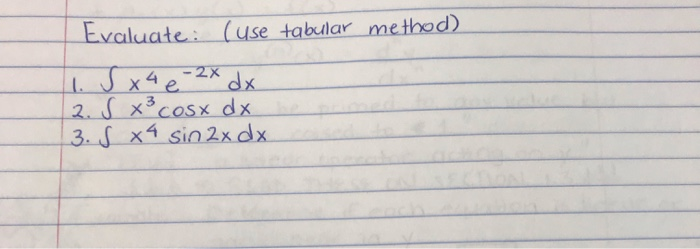 Evaluate: (use tabular method)
1. ∫ x⁴ e⁻²ˣ dx
2. ∫ x³ cosx dx
3. ∫ x⁴ sin2x dx